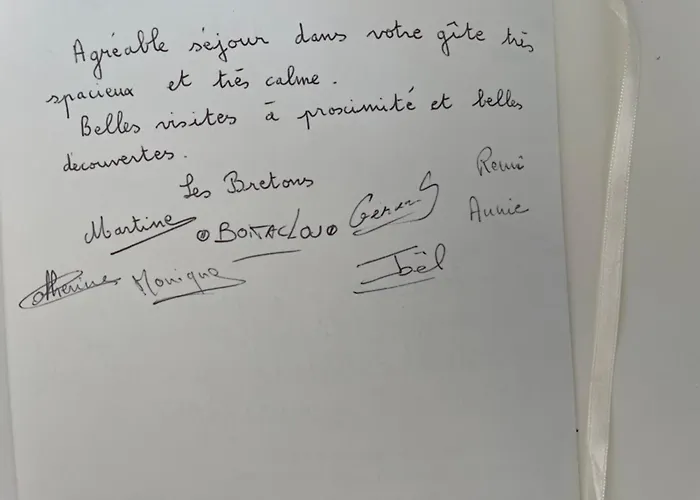 Agréable séjour dans votre gîte très
spacieux et très calme.
Belles visites à proximité et belles
découvertes.
Les Bretons
Remi
Martine
Annie
Catherine Monique
Joël